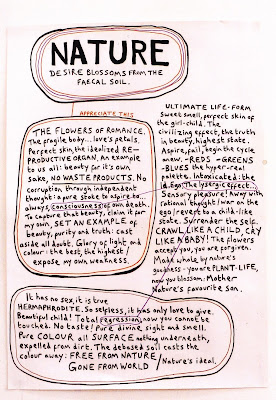 NATURE
DESIRE BLOSSOMS FROM THE
FAECAL SOIL.
APPRECIATE THIS
THE FLOWERS OF ROMANCE.
The fragile body.. love's petals.
Perfect skin, the idealized RE-
PRODUCTIVE ORGAN. An example
to us all: beauty for it's own
sake, NO WASTE PRODUCTS. No
corruption, through independent
thought: a pure state to aspire to..
always, consciousness of own death.
To capture that beauty, claim it for
my own, SET AN EXAMPLE of
beauty, purity and truth: cast
aside all doubt. Glory of light and
colour: the best, the highest/
expose my own weakness.
ULTIMATE LIFE-FORM
Sweet smell, perfect skin of
the girl-child. The
civilizing effect, the truth
in beauty, highest state.
Aspire, fail, begin the cycle
anew. -REDS -GREENS
-BLUES the hyper-real
palette. Intoxicated: the
Id. Ego. The lysergic effect..
Sensory pleasure! Away with
rational thought/war on the
ego/revert to a child-like
state. Surrender the self.
CRAWL LIKE A CHILD, CRY
LIKE A BABY! The flowers
accept you, you are forgiven.
Made whole by nature's
goodness - you are PLANT-LIFE,
now you blossom. Mother
Nature's favourite son.
It has no sex, it is true
HERMAPHRODITE. So selfless, it has only love to give.
Beautiful child! Total regression, now you cannot be
touched. No taste! Pure divine, sight and smell.
Pure COLOUR all SURFACE nothing underneath,
expelled from dirt. The debased soil casts the
colour away: FREE FROM NATURE/
GONE FROM WORLD/
Nature's ideal.